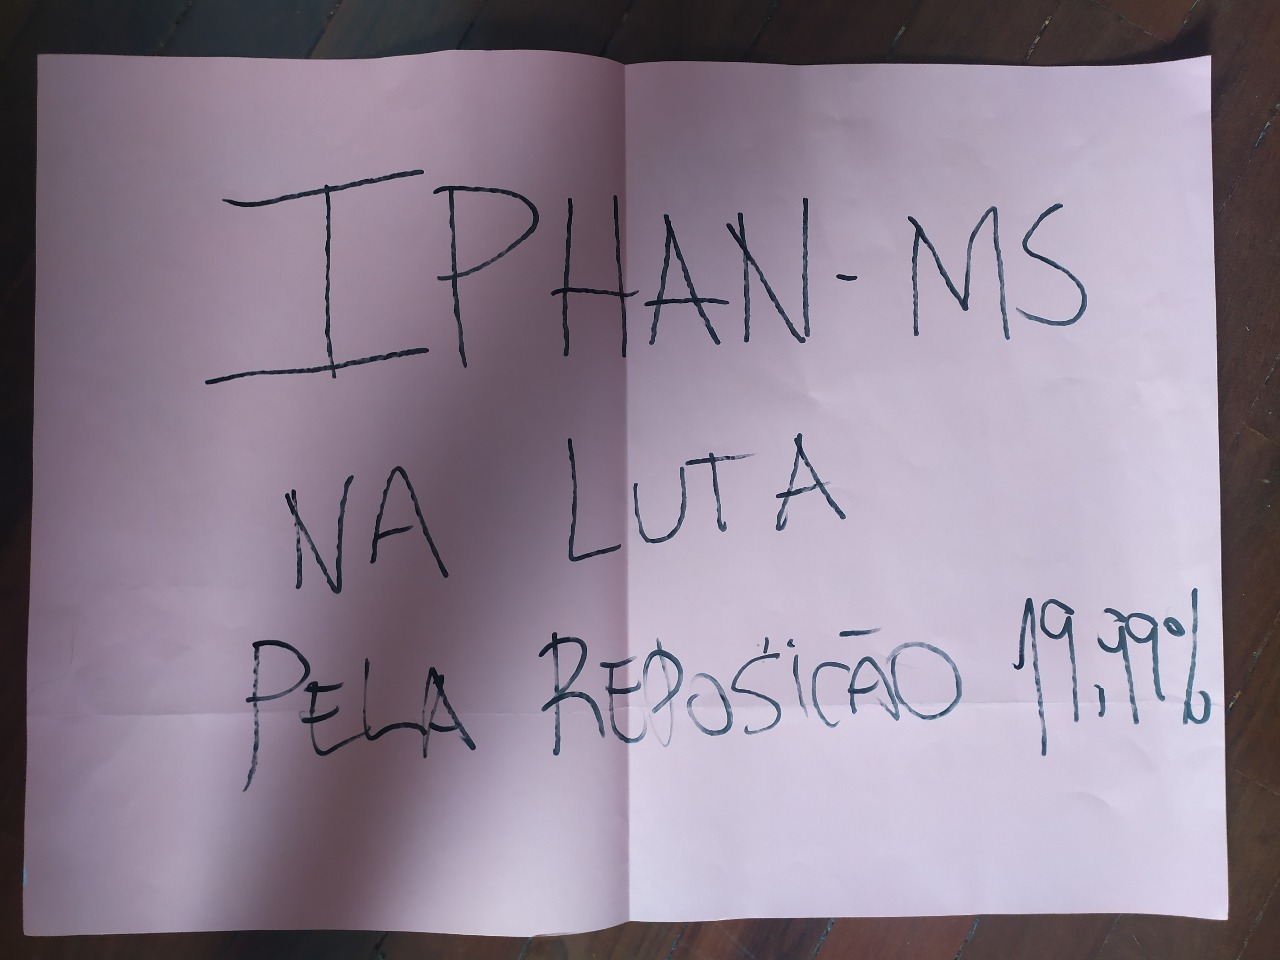 IPHAN-MS
NA LUTA
PELA REPOSICÃO 19,99%